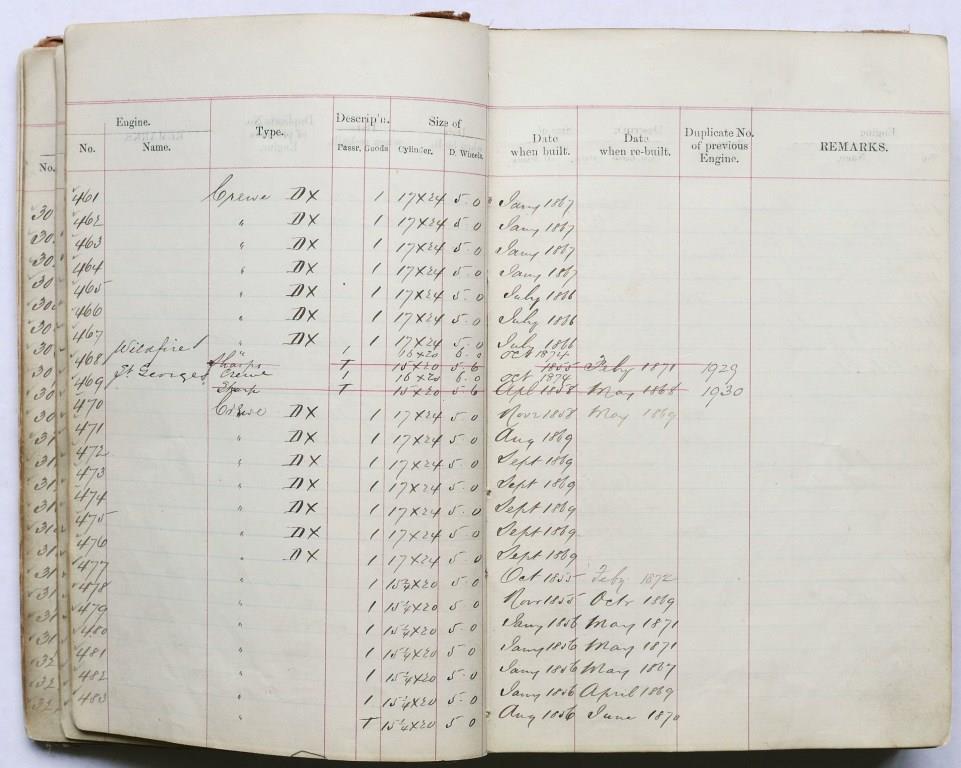 Engine. Descrip'n. Size of
No. Name. Type. Passr. Goods Cylinder. D. Wheels. Date when built. Date when re-built. Duplicate No. of previous Engine. REMARKS.
No.
461 Crewe DX 1 17×24 5.0 Jany 1867
462 " DX 1 17×24 5.0 Jany 1867
463 " DX 1 17×24 5.0 Jany 1867
464 " DX 1 17×24 5.0 Jany 1867
465 " DX 1 17×24 5.0 July 1866
466 " DX 1 17×24 5.0 July 1866
467 " DX 1 17×24 5.0 July 1866
468 Wildfire " 1 16×20 6.0 Oct 1874
Sharps T 15×20 5.6 1855 Feby 1871 1929
469 St George Crewe 1 16×20 6.0 Oct 1874
Sharp T 15×20 5.6 Apl 1858 May 1868 1930
470 Crewe DX 1 17×24 5.0 Novr 1858 May 1869
471 " DX 1 17×24 5.0 Aug 1869
472 " DX 1 17×24 5.0 Sept 1869
473 " DX 1 17×24 5.0 Sept 1869
474 " DX 1 17×24 5.0 Sept 1869
475 " DX 1 17×24 5.0 Sept 1869
476 " DX 1 17×24 5.0 Sept 1869
477 " 1 15¼×20 5.0 Oct 1855 Feby 1872
478 " 1 15¼×20 5.0 Novr 1855 Octr 1869
479 " 1 15¼×20 5.0 Jany 1856 May 1871
480 " 1 15¼×20 5.0 Jany 1856 May 1871
481 " 1 15¼×20 5.0 Jany 1856 May 1867
482 " 1 15¼×20 5.0 Jany 1856 April 1869
483 " T 15¼×20 5.0 Aug 1856 June 1870